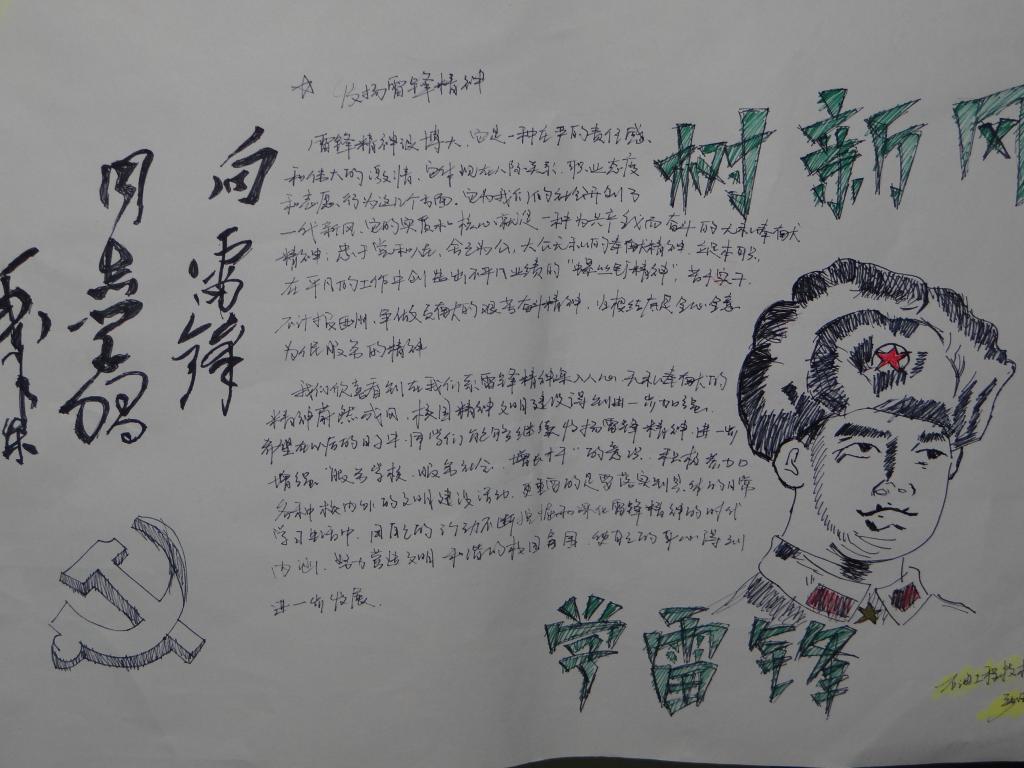 向雷锋
同志学习
毛
☆ 发扬雷锋精神
雷锋精神博大,它是一种庄严的责任感
和伟大的激情,它体现在人际关系、职业态度
和志愿行为这几个方面,它为我们的社会开创了
一代新风,它的实质和核心就是一种为共产主义而奋斗的无私奉献
精神;忠于党和人民,舍己为公,大公无私的奉献精神,立足本职,
在平凡的工作中创造出不平凡业绩的“螺丝钉精神”,苦干实干,
不计报酬,争做贡献的艰苦奋斗精神,归根结底是全心全意
为人民服务的精神
我们欣喜看到在我们系雷锋精神深入人心,无私奉献的
精神蔚然成风,校园精神文明建设得到进一步加强.
希望在以后的日子,同学们能够继续发扬雷锋精神,进一步
增强“服务学校、服务社会、增长才干”的意识,积极参加
各种校内外的文明建设活动,更重要的是要落实到具体的日常
学习生活中,用自己的行动不断挖掘和深化雷锋精神的时代
内涵,努力营造文明和谐的校园氛围,使自己的身心得到
进一步发展.
树新风
学雷锋
石油工程技术